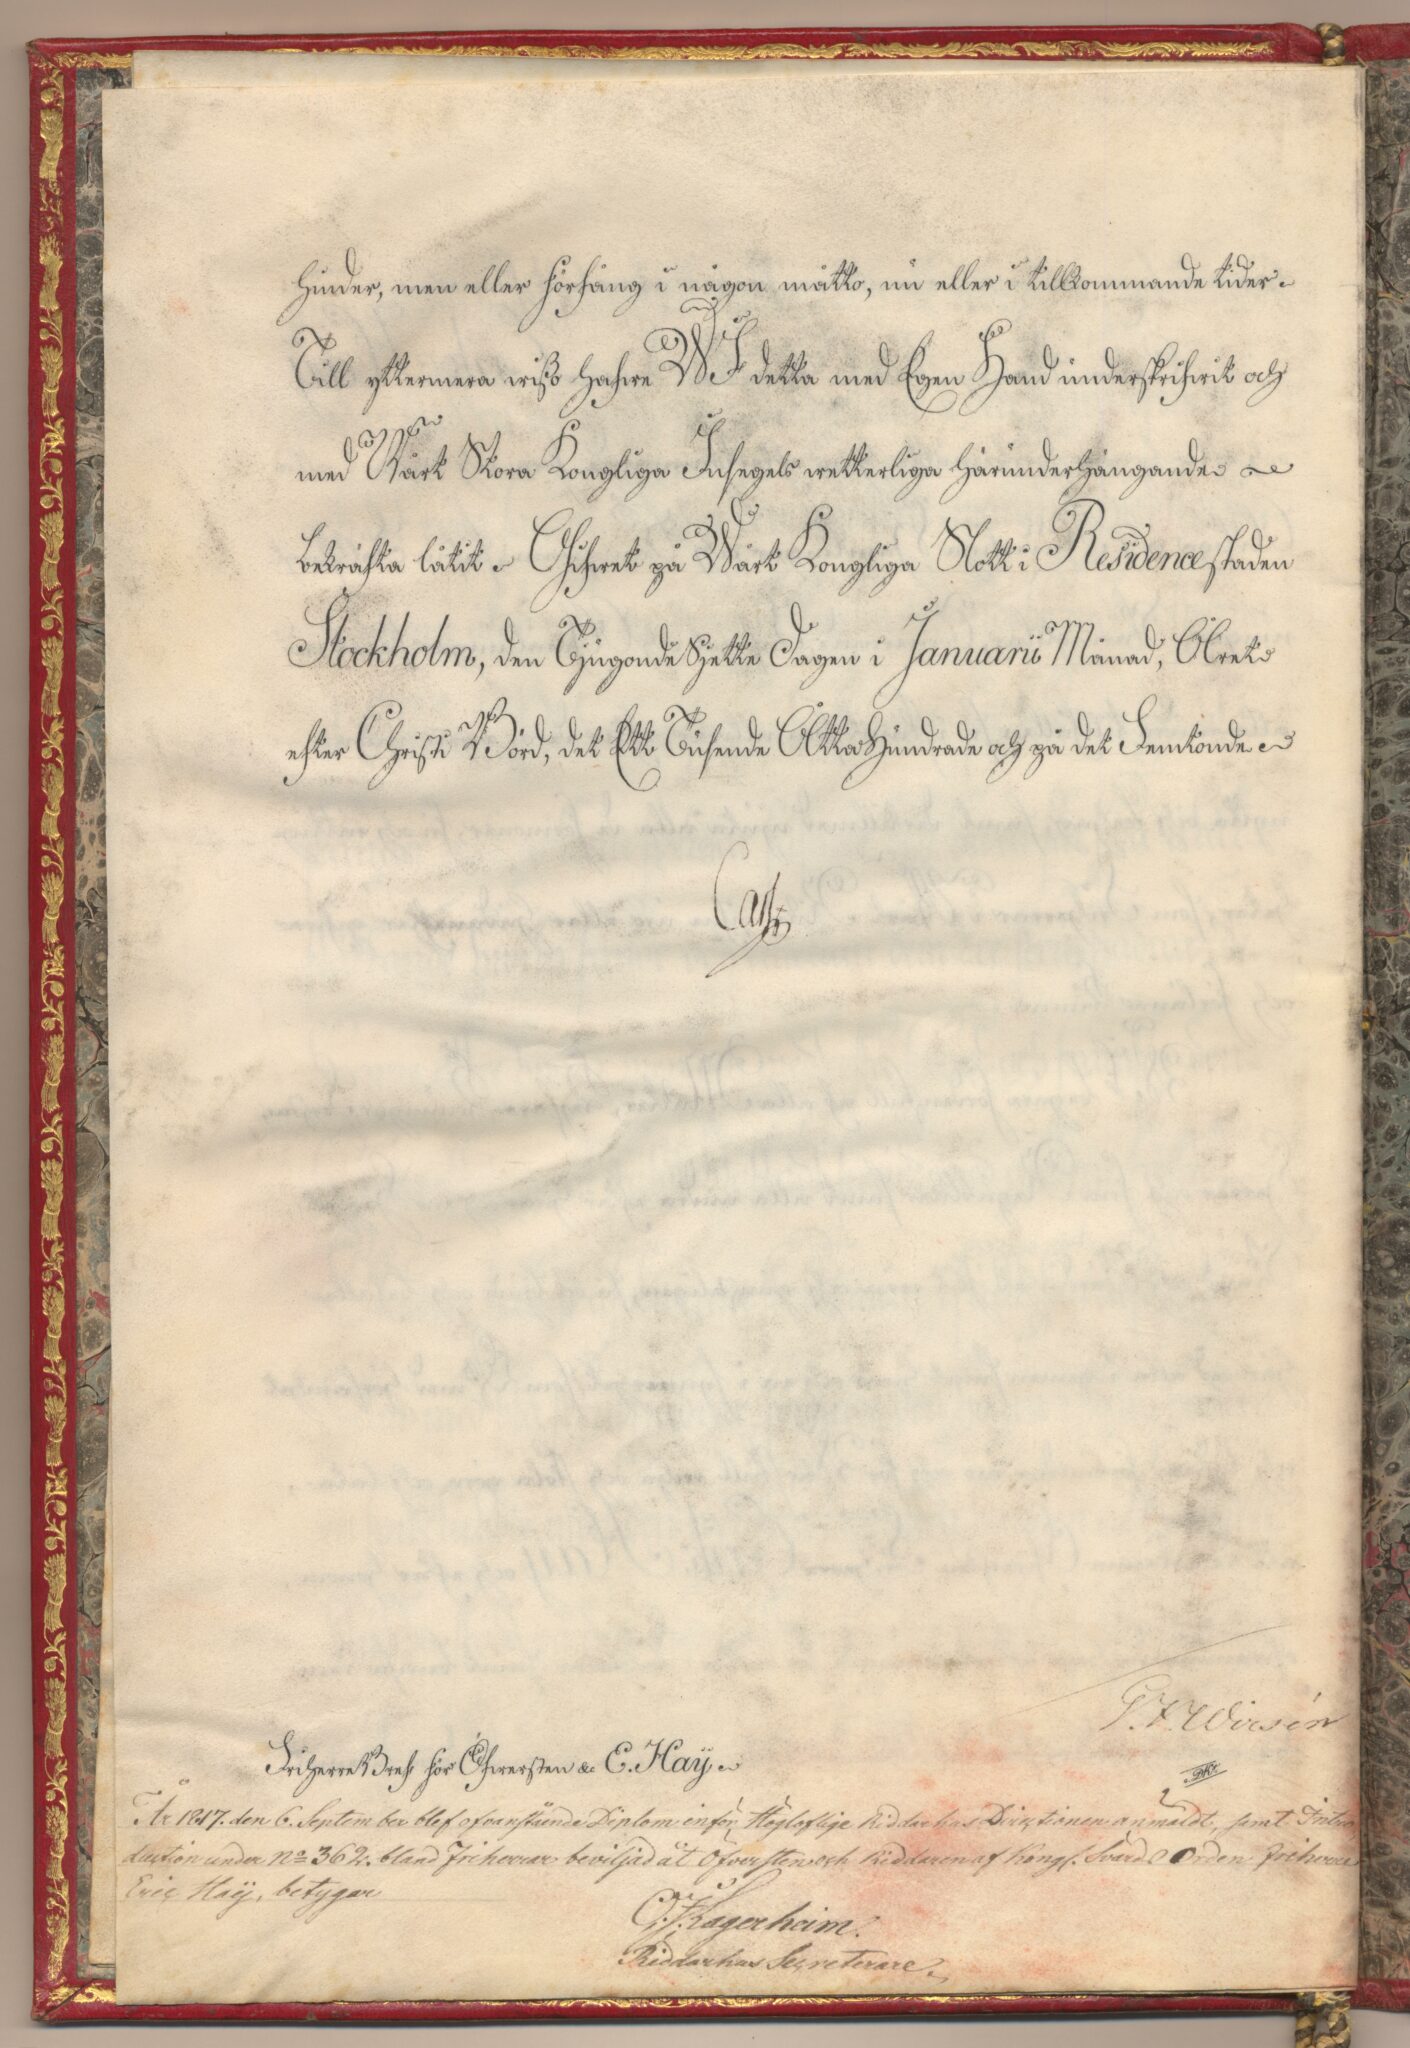 hinder, men eller förfång i någon måtto, nu eller i tillkommande tider.
Till yttermera wisso hafwe WJ detta med Egen Hand underskrifwit och
med Wårt Stora Kongliga Insegels wetterliga härunderhängande
bekräfta låtit. Gifwet på Wårt Kongliga Slott i Residence staden
Stockholm, den Tjugonde Sjette Dagen i Januarii Månad, Åhret
efter Christi Börd, det Ett Tusende Åtta Hundrade och på det Femtonde
Carl
G. F. Wirsén
Friherre Bref för Öfwersten &c E. Haij
År 1817. den 6. September blef ofvanstående Diplom inför Högloflige Riddarhus Directionen anmäldt, samt Intro
duction under no 362. bland Friherrar beviljad åt Öfversten och Riddaren af Kongl. Svärds Orden Friherre
Eric Haij, betygar
Lagerheim.
Riddarhus Secreterare.